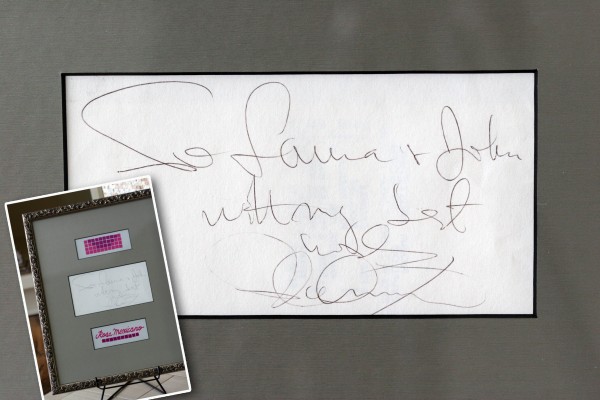 To Laura + John
with my best
Rosa Mexicano